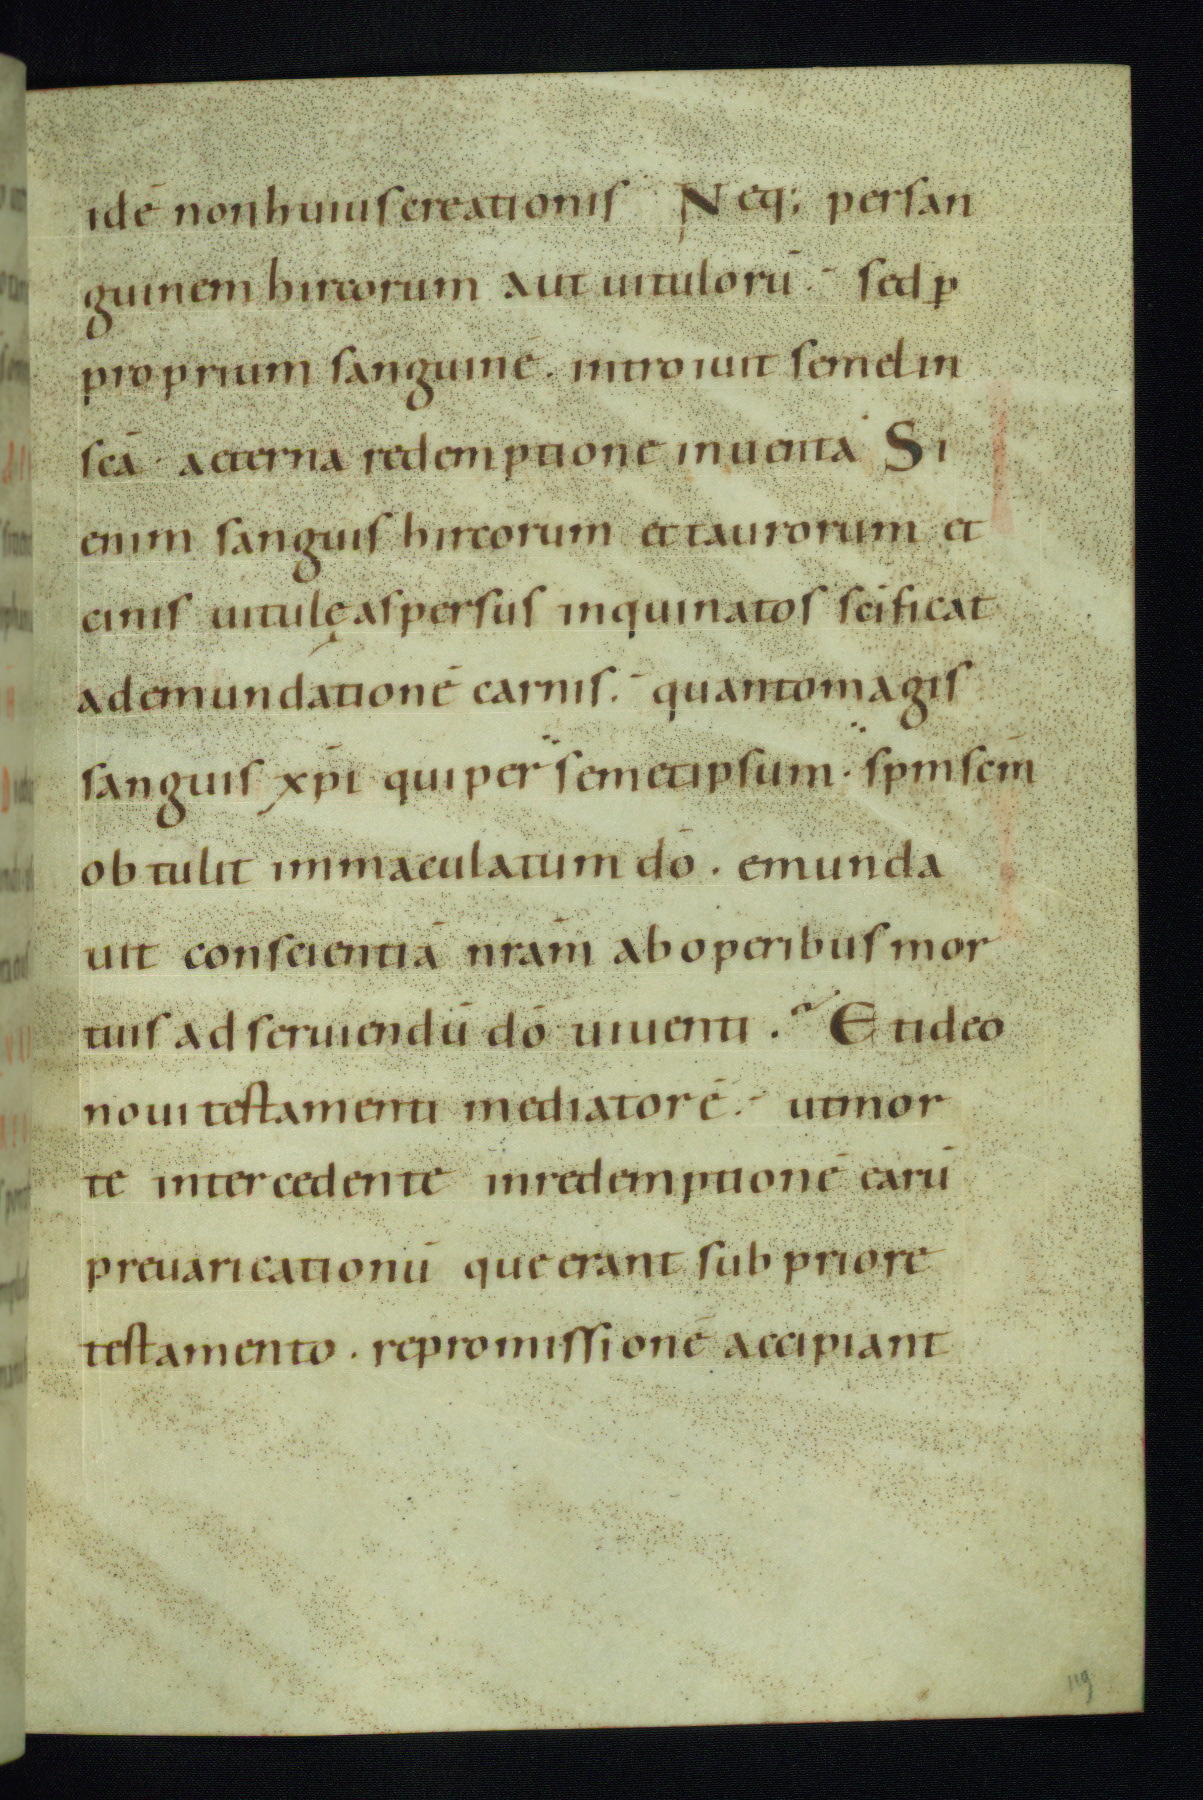 idē non huius creationis Neq; per san
guinem hircorum aut uitulorū. sed ꝑ
proprium sanguinē. introiuit semel in
scā. aeterna redemptione inuenta Si
enim sanguis hircorum et taurorum et
cinis uitulę aspersus inquinatos scificat
ad emundationē carnis. quanto magis
sanguis xp̄i qui per semetipsum. sp̄m scm̄
obtulit immaculatum dō. emunda
uit conscientiā nrām ab operibus mor
tuis ad seruiendū dō uiuenti. Et ideo
noui testamenti mediator ē. ut mor
te intercedente in redemptionē earū
preuaricationū que erant sub priore
testamento. repromissionē accipiant
119